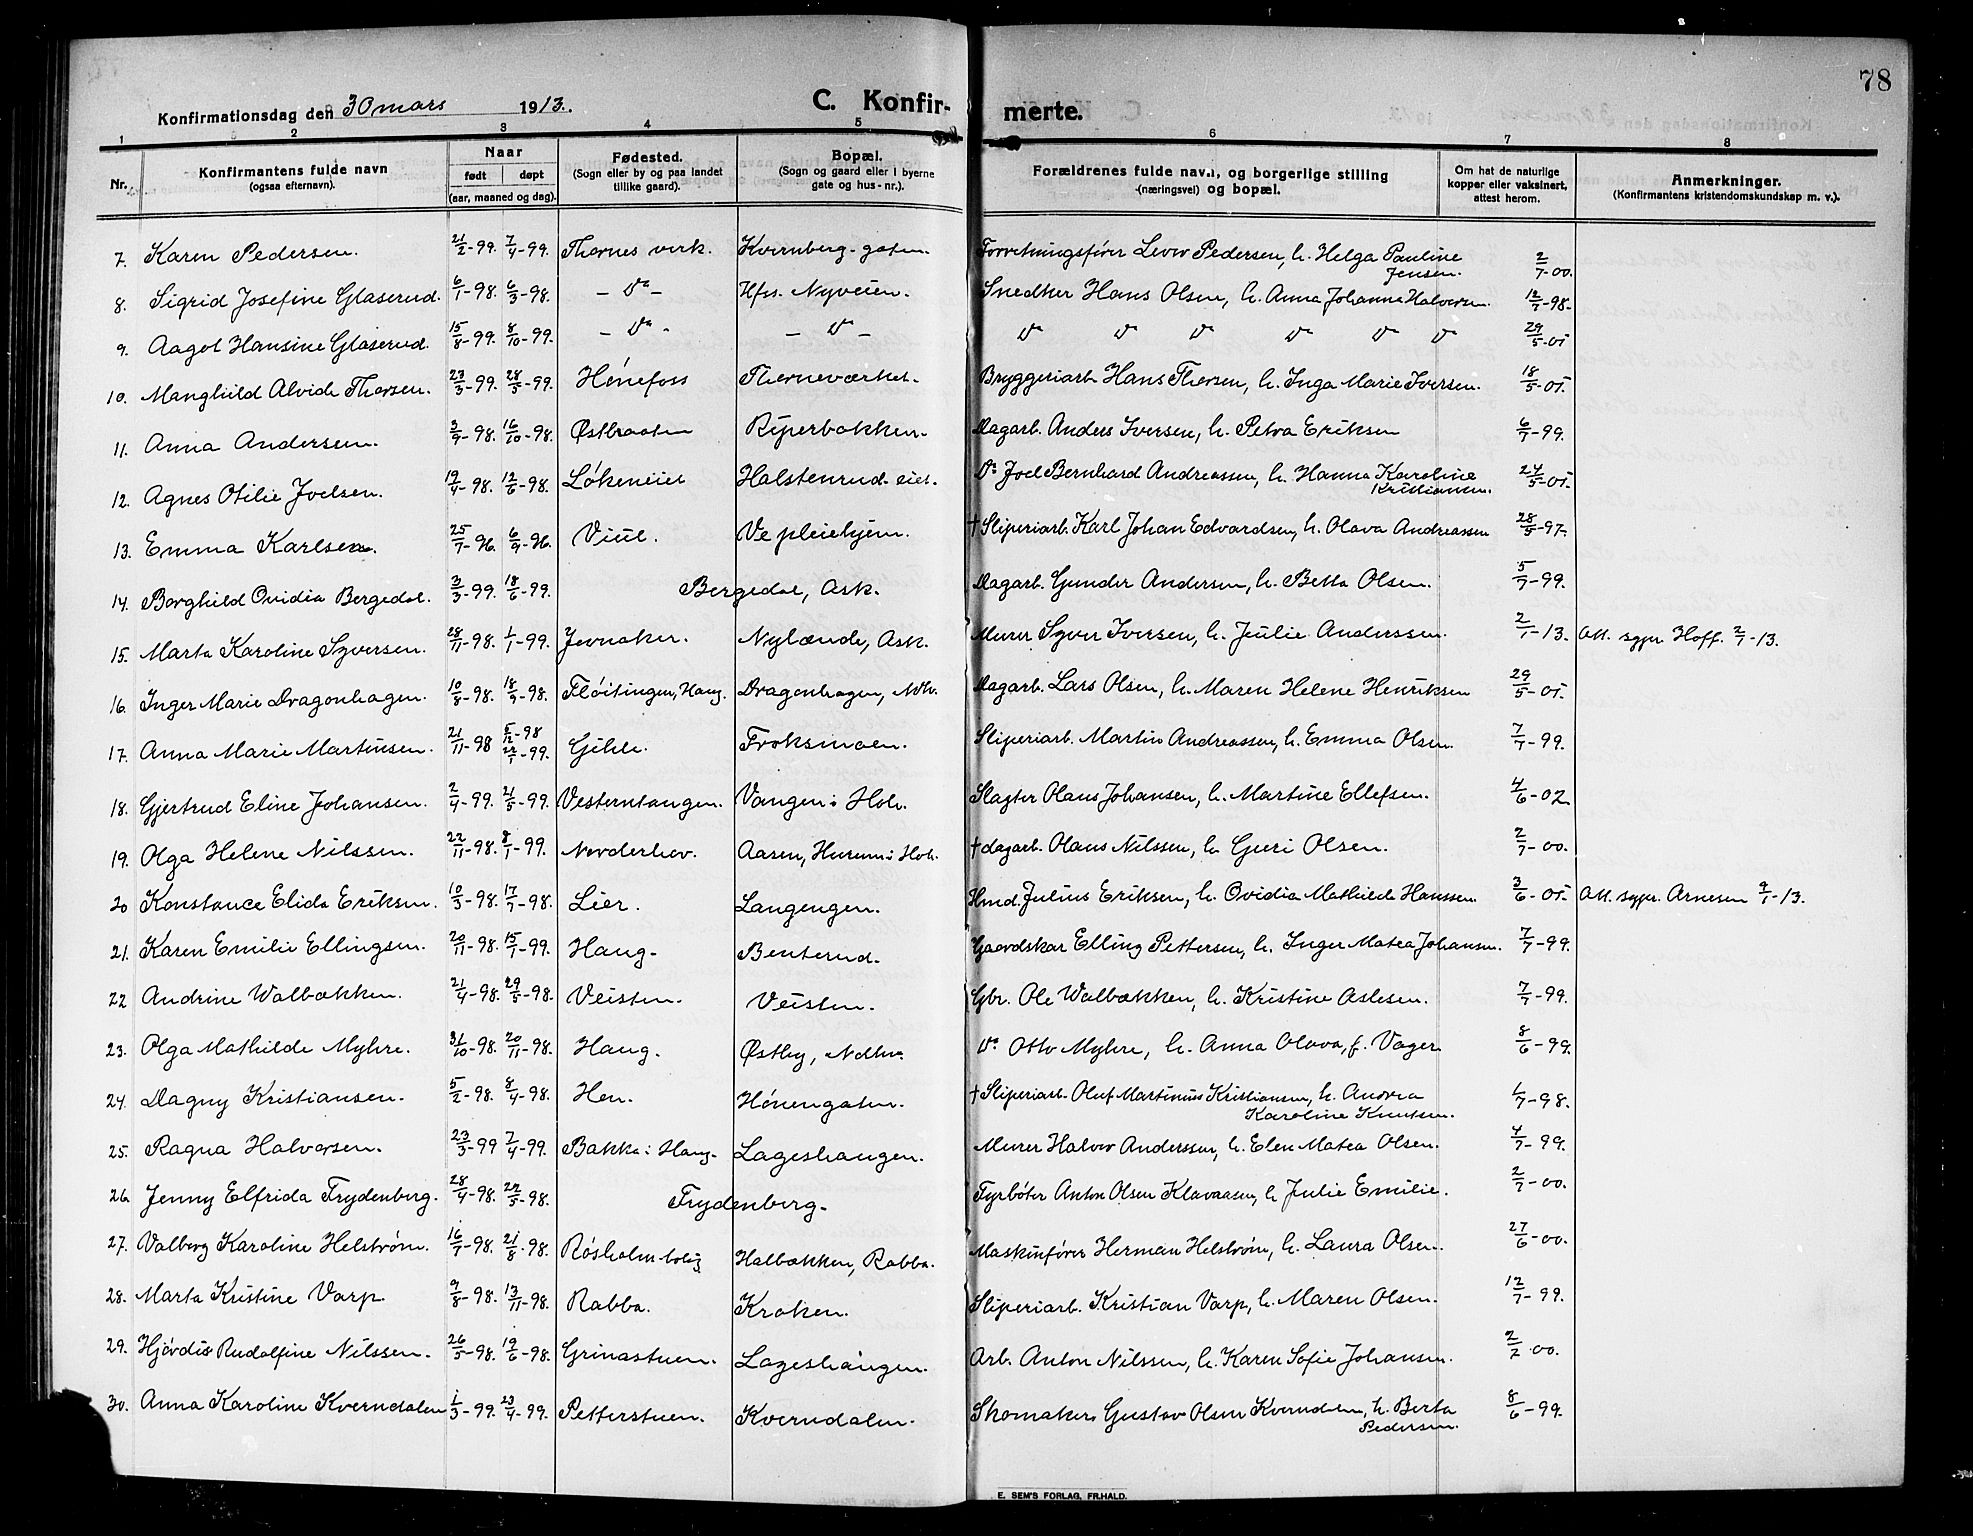 78
Konfirmationsdag den 30 mars 1913.
C. Konfirmerte.
1 2 3 4 5 6 7 8
Nr. Konfirmantens fulde navn (ogsaa efternavn). Naar født døpt (aar, maaned og dag). Fødested. (Sogn eller by og paa landet tillike gaard). Bopæl. (Sogn og gaard eller i byerne gate og hus-nr.). Forældrenes fulde navn, og borgerlige stilling (næringsvei) og bopæl. Om hat de naturlige kopper eller vaksinert, attest herom. Anmerkninger. (Konfirmantens kristendomskundskap m. v.).
7. Karen Pedersen. 21/2-99. 7/4-99. Thornes verk. Kvernberg-gaten. Forretningsfører Lever Pedersen, h. Helga Pauline Jensen. 2/7-00.
8. Sigrid Josefine Glaserud. 6/1-98. 6/3-98. - Do - Hfss. Nyveien. Snedker Hans Olsen, h. Anna Johanne Halvorsen. 12/7-98.
9. Aagot Hansine Glaserud. 15/8-99. 8/10-99. - Do - - Do - Do Do Do Do Do Do 29/5-05
10. Manghild Alvide Thorsen. 23/3-99. 28/5-99. Hønefoss Thorneværket. Bryggeriarb. Hans Thorsen, h. Inga Marie Iversen. 18/5-05.
11. Anna Andersen. 3/9-98. 16/10-98. Østbraaten Riperbakken. Dagarb. Anders Iversen, h. Petra Eriksen 6/7-99.
12. Agnes Otilie Joelsen. 19/4-98. 12/6-98. Løkeneiet Halstenrud-eiet. Do Joel Bernhard Andreassen, h. Hanna Karoline Kristiansen. 24/5-05.
13. Emma Karlsen. 25/7-96. 6/9-96. Viul. Ve pleiehjem. † Sliperiarb. Karl Johan Edvardsen, h. Olava Andreassen 28/5-97.
14. Borghild Ovidia Bergedal. 3/3-99. 18/6-99. Bergedal, Ask. Dagarb. Gunder Andersen, h. Betta Olsen. 5/7-99.
15. Marta Karoline Syversen. 28/11-98. 1/1-99. Jevnaker. Nylænde, Ask. Murer Syver Iversen, h. Julie Anderssen. 2/1-13. Att. sgpr Hoff. 2/1-13.
16. Inger Marie Dragonhagen. 10/8-98. 18/9-98. Fløitingen, Haug. Dragonhagen, Ndh. Dagarb. Lars Olsen, h. Maren Helene Henriksen 29/5-05.
17. Anna Marie Martinsen. 21/11-98 5/12-98 22/1-99. Gihle. Froksmoen. Sliperiarb. Martin Andreassen, h. Emma Olsen. 7/7-99.
18. Gjertrud Eline Johansen. 2/4-99. 21/5-99. Vesterntangen. Vangen i Hol. Slagter Olaus Johansen, h. Martine Ellefsen. 4/6-02
19. Olga Helene Nilssen. 22/11-98. 8/1-99. Norderhov. Aasen, Hurum i Hol. † dagarb. Olaus Nilssen, h. Guri Olsen. 2/7-00.
20 Konstance Elida Eriksen. 10/3-98. 17/7-98. Lier. Langengen. Hmd. Julius Eriksen, h. Ovidia Mathilde Hanssen. 3/6-05. Att. sgpr. Arnesen 9/1-13.
21. Karen Emilie Ellingsen. 20/11-98. 15/1-99. Haug. Benterud. Gaardskar Elling Pettersen, h. Inger Matea Johansen. 7/7-99.
22 Andrine Walbækken. 21/4-98. 29/5-98. Veisten. Veisten. Gbr. Ole Walbækken, h. Kristine Aslesen. 7/7-99.
23. Olga Mathilde Myhre. 31/10-98. 20/11-98. Haug. Østby, Ndhv. Do Otto Myhre, h. Anna Olava, f. Vager 8/6-99.
24. Dagny Kristiansen. 5/2-98. 8/4-98. Hen. Hønengaten. † Sliperiarb. Oluf Martinius Kristiansen, h. Andrea Karoline Knutsen. 1/7-98.
25. Ragna Halvorsen. 23/3-99 7/4-99. Bakke i Haug. Lageshaugen. Murer Halvor Anderssen, h. Elen Matea Olsen. 4/7-99.
26. Jenny Elfrida Frydenberg. 28/4-98. 22/5-98. Frydenberg. Fyrbøter Anton Olsen Klavaasen, h Julie Emilie. 2/7-00.
27. Valberg Karoline Helstrøm. 16/7-98. 21/8-98. Røsholm-bolig Halbækken, Rabba. Maskinfører Herman Helstrøm, h. Laura Olsen. 27/6-00.
28. Marta Kristine Varp. 9/8-98. 13/11-98. Rabba. Kroken. Sliperiarb. Kristian Varp, h. Maren Olsen. 12/7-99.
29. Hjørdis Rudolfine Nilssen. 26/5-98. 19/6-98. Grinastuen. Lageshaugen. Arb. Anton Nilssen, h. Karen Sofie Johansen. 2/7-00.
30. Anna Karoline Kverndalen 1/3-99. 23/4-99. Petterstuen. Kverndalen. Skomaker Gustav Olsen Kverndalen, h. Berta Pedersen. 8/6-99.
E. SEM'S FORLAG, FR.HALD.